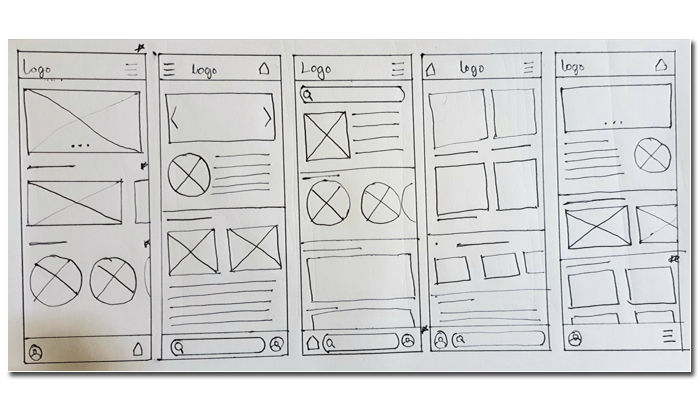 Logo
Logo
Logo
Logo
Logo